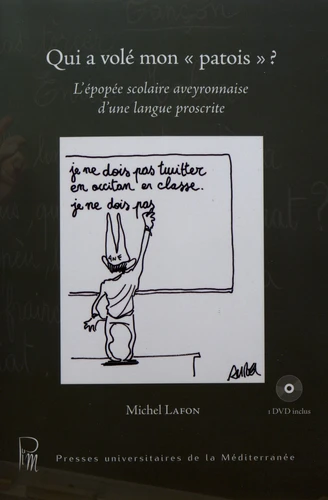 Qui a volé mon « patois » ?
L'épopée scolaire aveyronnaise
d'une langue proscrite
je ne dois pas twitter
en occitan en classe.
je ne dois pas
ANE
Michel LAFON
1 DVD inclus
Presses universitaires de la Méditerranée